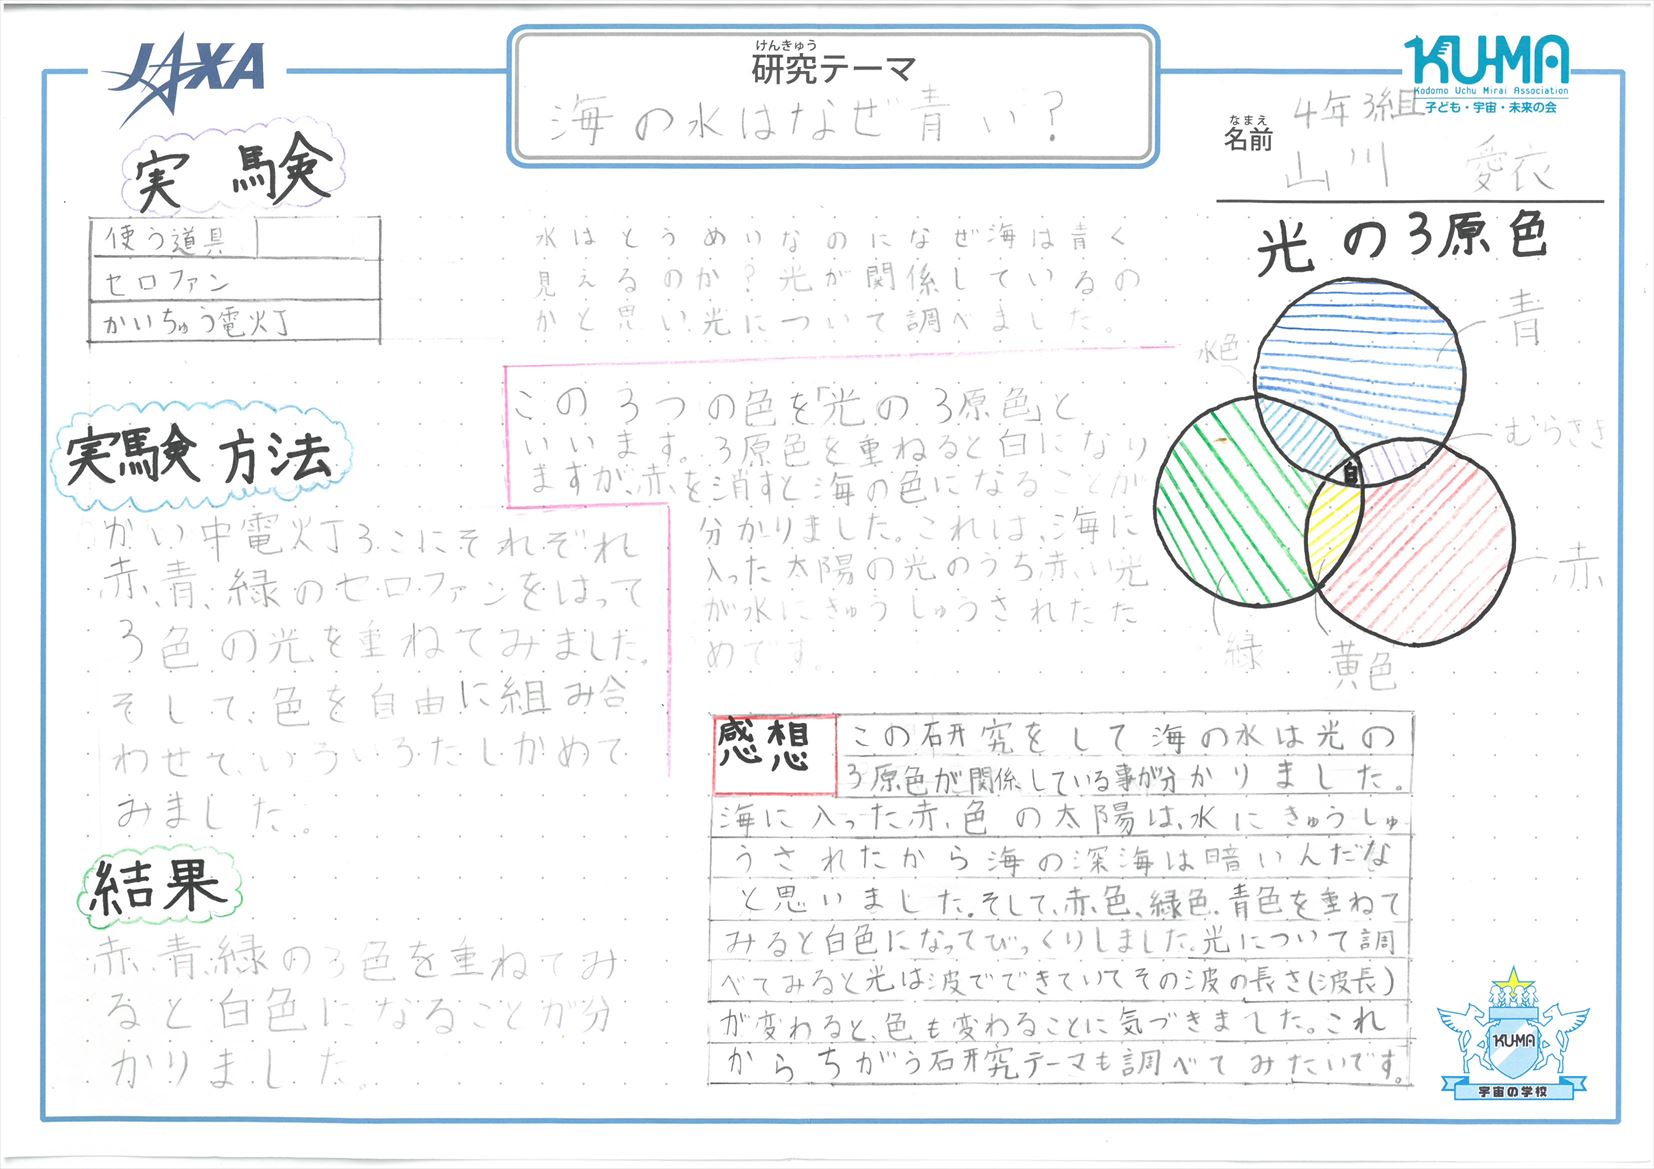 JAXA
けんきゅう
研究テーマ
海の水はなぜ青い?
KU-MA
Kodomo Uchu Mirai Association
子ども・宇宙・未来の会
4年3組
なまえ
名前
山川 愛衣
実験
使う道具
セロファン
かいちゅう電灯
水はとうめいなのになぜ海は青く
見えるのか?光が関係しているの
かと思い光について調べました。
実験方法
かい中電灯3こにそれぞれ
赤、青、緑のセロファンをはって
3色の光を重ねてみました。
そして、色を自由に組み合
わせて、いろいろたしかめて
みました。
結果
赤、青、緑の3色を重ねてみ
ると白色になることが分
かりました。
この3つの色を「光の3原色」と
いいます。3原色を重ねると白になり
ますが、赤を消すと海の色になることが
分かりました。これは、海に
入った太陽の光のうち赤い光
が水にきゅうしゅうされたた
めです。
光の3原色
青
水色
むらさき
白
赤
緑
黄色
感想
この研究をして海の水は光の
3原色が関係している事が分かりました。
海に入った赤、色の太陽は、水にきゅうしゅ
うされたから海の深海は暗いんだな
と思いました。そして、赤色、緑色、青色を重ねて
みると白色になってびっくりしました。光について調
べてみると光は波でできていてその波の長さ(波長)
が変わると、色も変わることに気づきました。これ
からちがう研究テーマも調べてみたいです。
KUMA
宇宙の学校